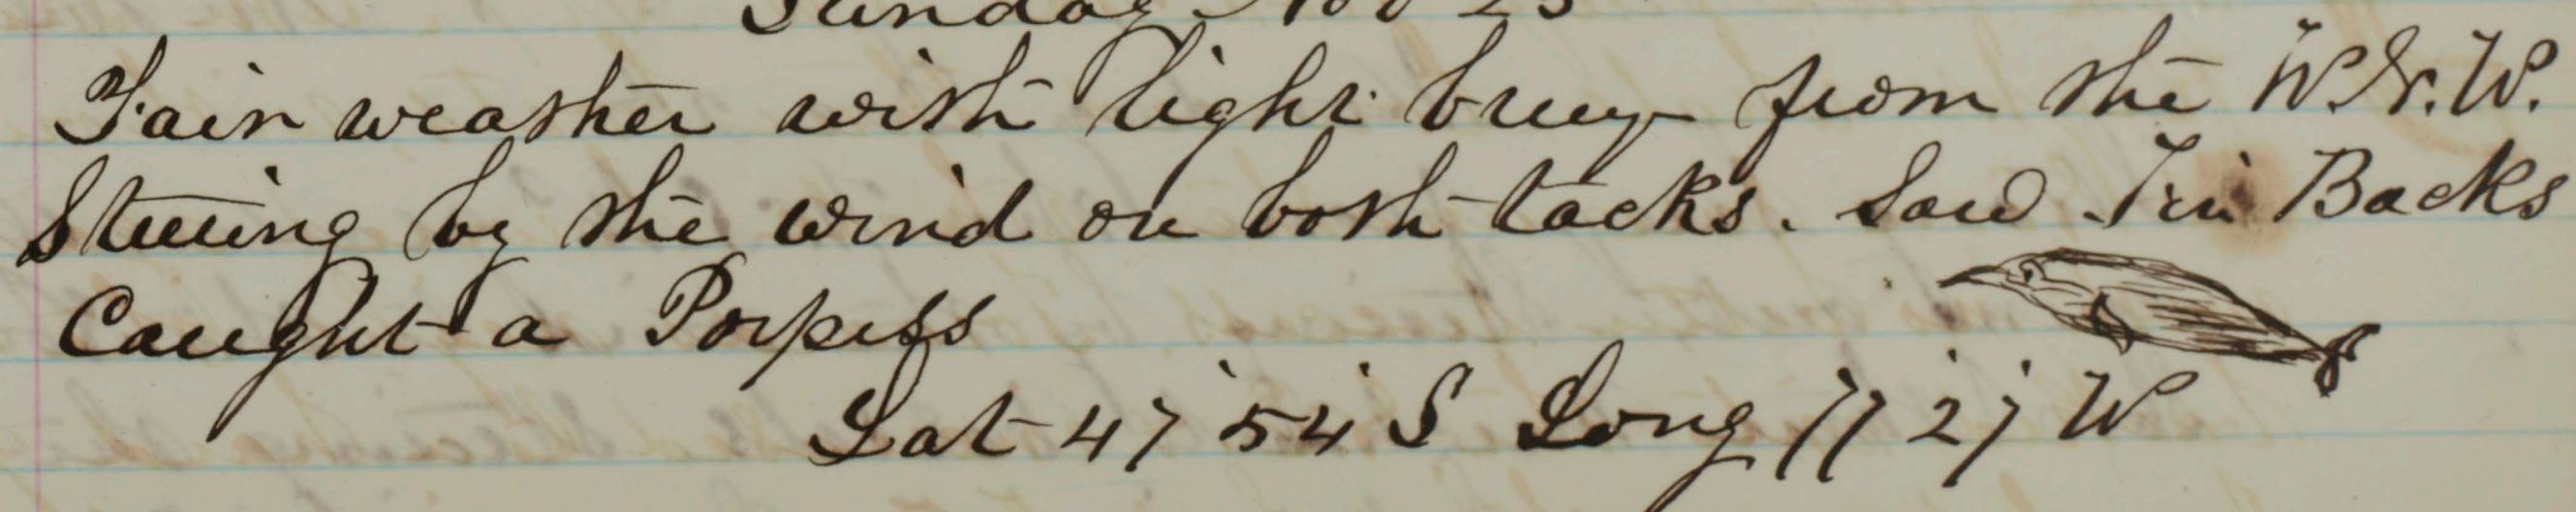 Sunday Nov 25
Fair weather with light breeze from the W.N.W.
Steering by the wind on both tacks. Saw Fin Backs
Caught a Porpess
Lat 47 54 S Long 77 27 W